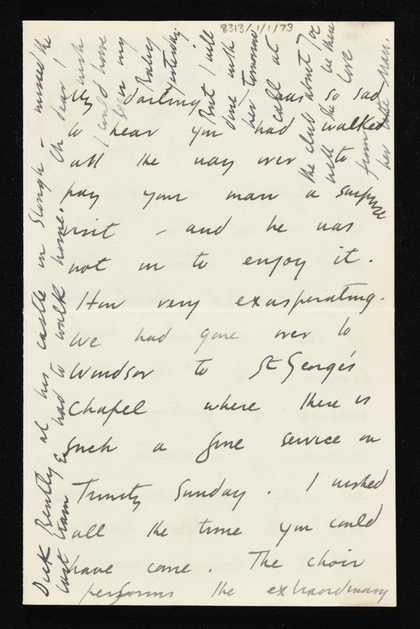 8313/1/1/73
My Darling I was so sad
to hear you had walked
all the way over to
pay your man a surprise
visit – and he was
not in to enjoy it.
How very exasperating.
We had gone over to
Windsor to St George's
Chapel where there is
such a fine service on
Trinity Sunday. I wished
all the time you could
have come. The choir
performs the extraordinary
Dick Bently at his castle in Slough – missed the
last tram & had to walk home.
Oh dear! I wish
I could have
been my
Baby
yesterday.
But I will
dine with
her tomorrow
call at
the club about 7 or
will be there
the love
from
her Man.